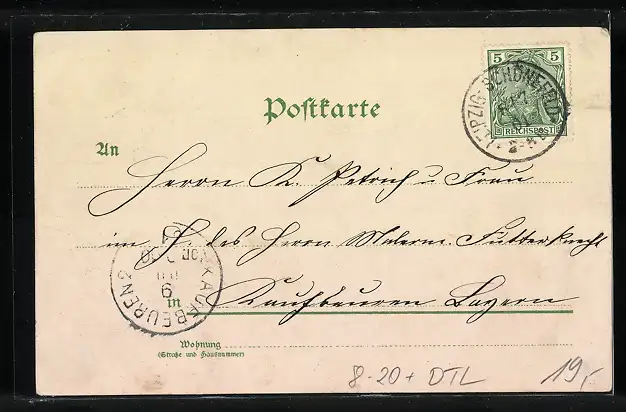 5 5
REICHSPOST
LEIPZIG-SCHÖNEFELD
Postkarte
An
Herrn K. Petrich u. Frau
im H. des Herrn Malerm. Futterknecht
in Kaufbeuren Bayern
KAUFBEUREN
Wohnung
(Straße und Hausnummer)
8-20+ DTL
19,-